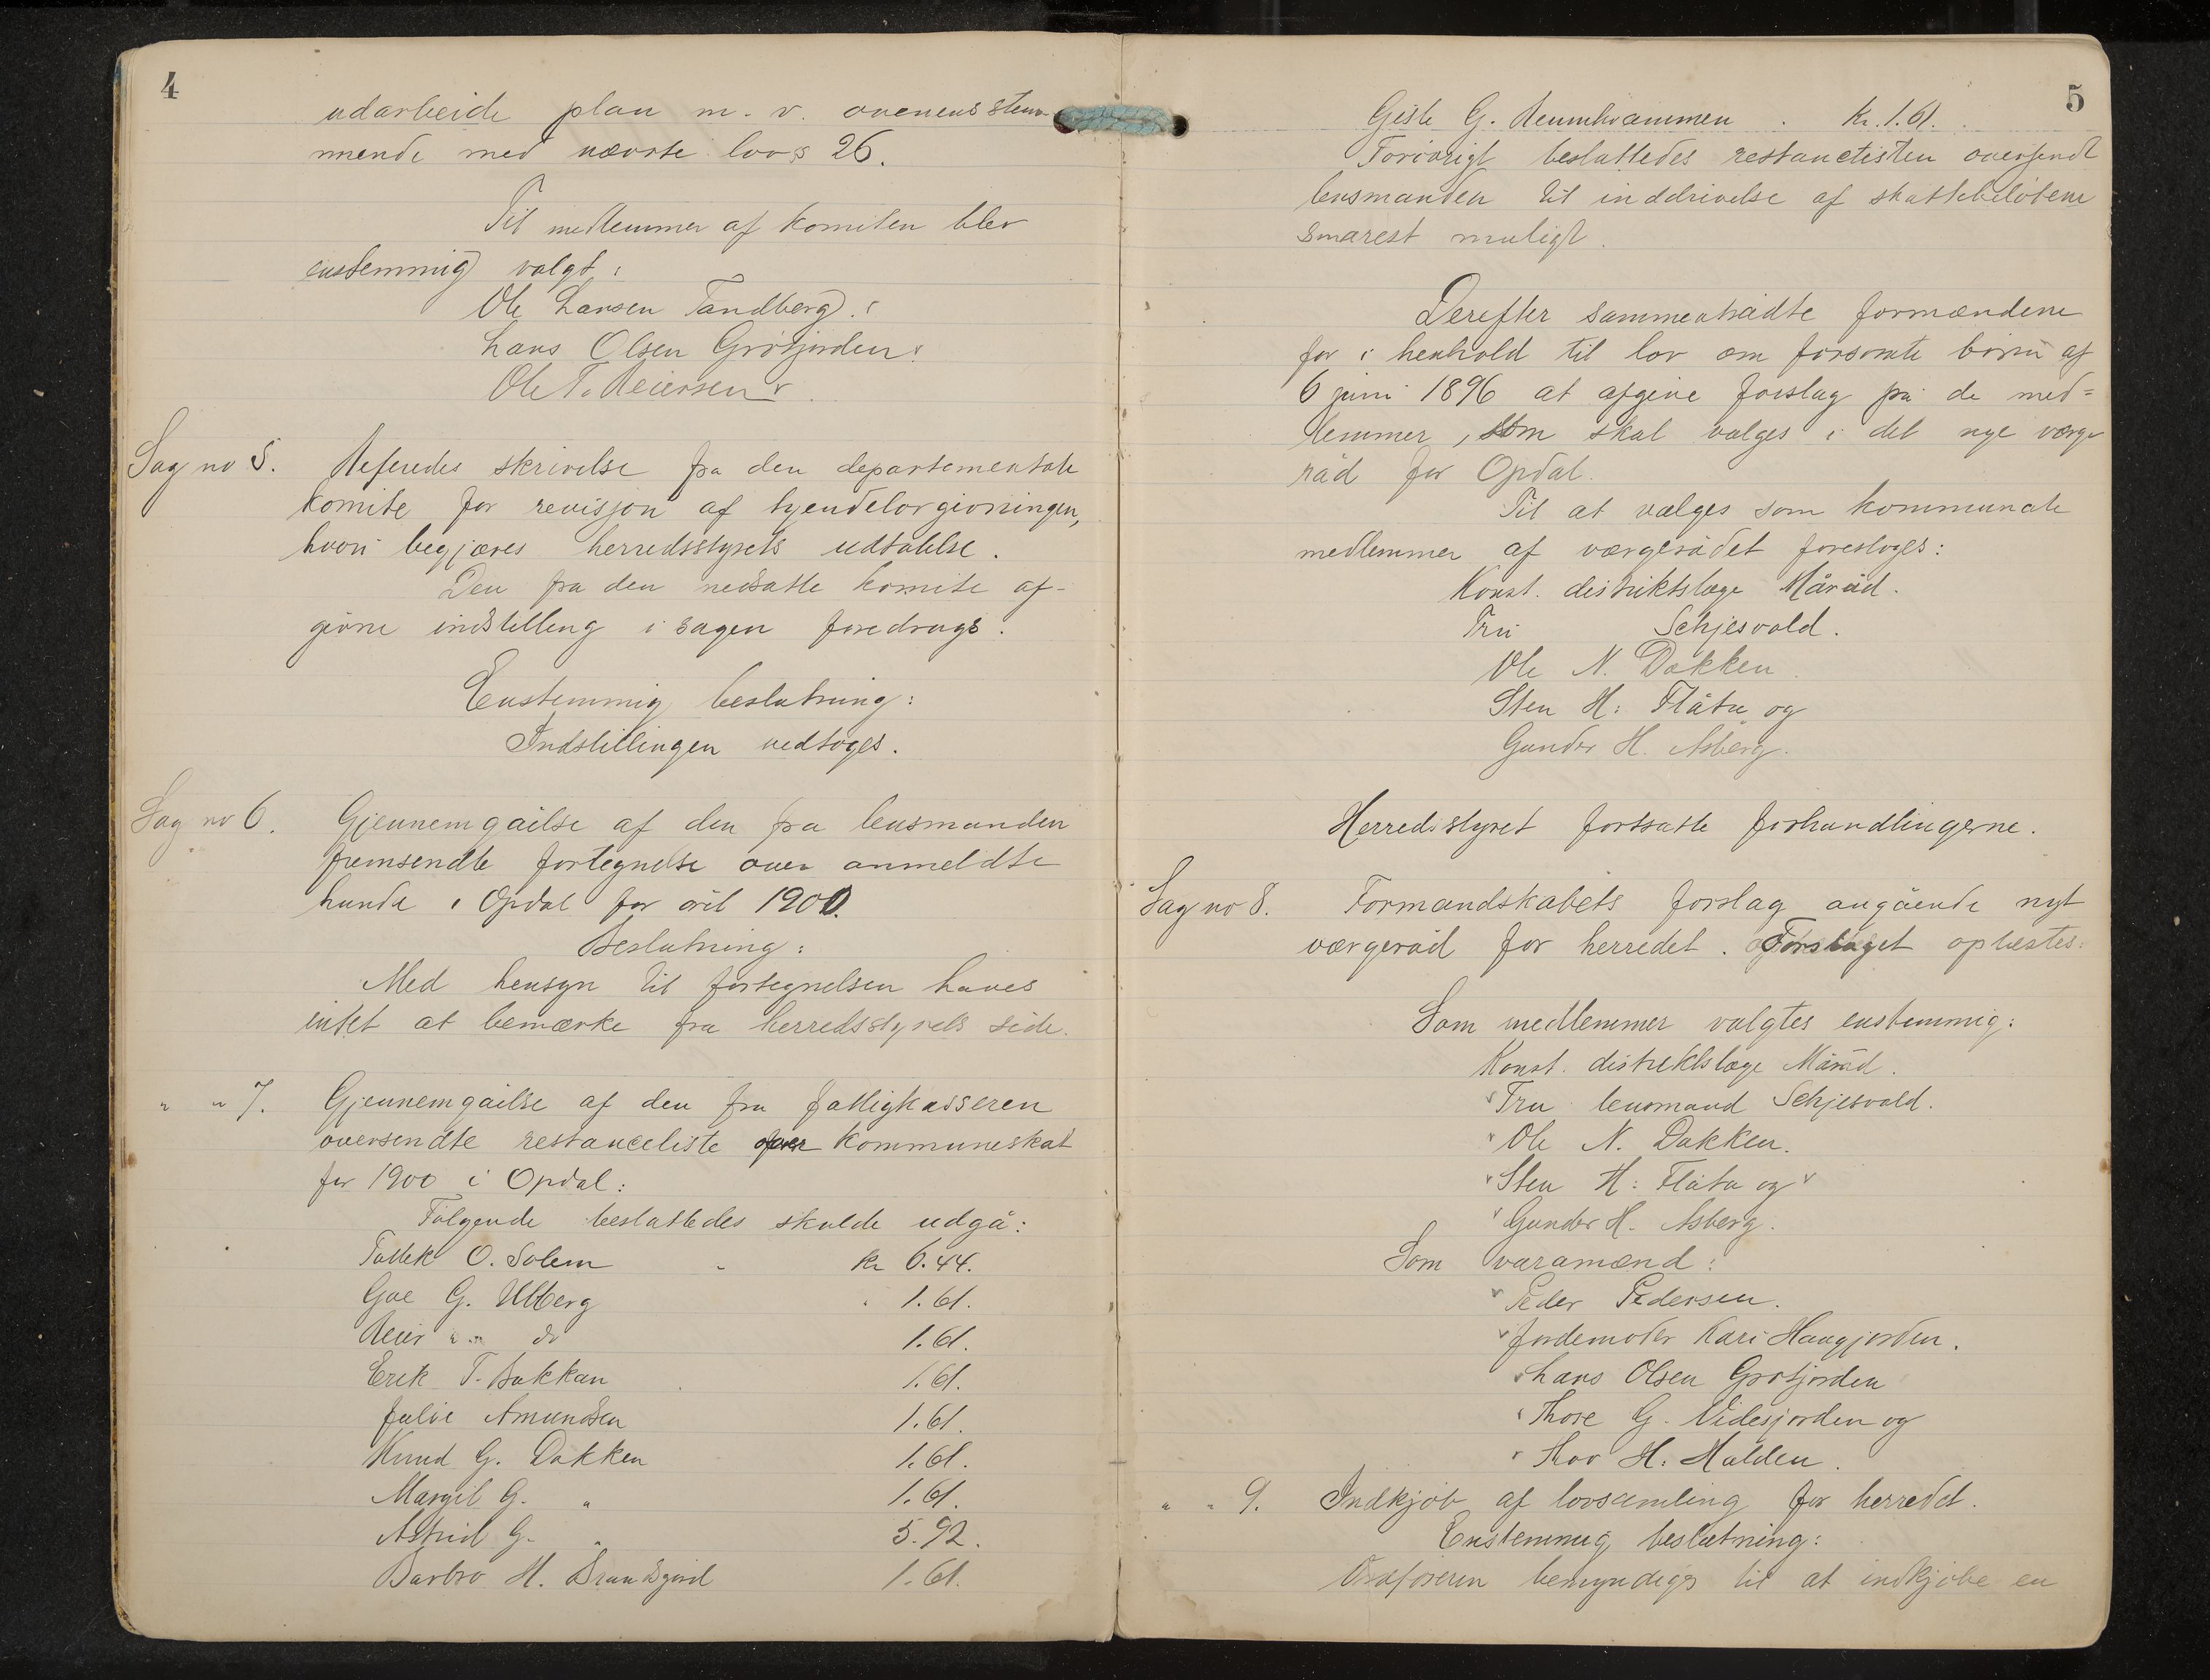 4
udarbeide plan m. v. overensstem-
mende med nævnte lov § 26.
Til medlemmer af komiteen blev
enstemmig valgt:
Ole Larsen Tandberg.
Hans Olsen Grøtjorden.
Ole T. Reiersen
Sag no 5. Referedes skrivelse fra den departementale
komite for revisjon af tyendelovgivningen,
hvori begjæres herredsstyrets udtalelse.
Den fra den nedsatte komite af-
givne indstilling i sagen foredrags.
Enstemmig beslutning:
Indstillingen vedtoges.
Sag no 6. Gjennemgåelse af den fra lensmanden
fremsendte fortegnelse over anmeldte
hunde i Opdal for året 1900.
Beslutning:
Med hensyn til fortegnelsen haves
intet at bemærke fra herredsstyrets side.
" " 7. Gjennemgåelse af den fra fattigkasseren
oversendte restanceliste over kommuneskat
for 1900 i Opdal:
Følgende besluttedes skulde udgå:
Tollek O. Solem kr 6.44.
Goe G. Ulberg 1.61.
Reier " " do 1.61.
Erik T. Bakkan 1.61.
Julie Amundsen 1.61.
Knud G. Dokken 1.61.
Margit G. " 1.61.
Astrid G. " 5.92.
Barbro H. Brundsgård 1.61.
5
Gisle G. Kr. 1.61.
Forøvrigt besluttedes restancelisten oversendt
lensmanden til inddrivelse af skattebeløbene
snarest muligt.
Derefter sammentrådte formændene
for i henhold til lov om forsømte børn af
6 juni 1896 at afgive forslag på de med=
lemmer, som skal vælges i det nye værge
råd for Opdal.
Til at vælges som kommunale
medlemmer af værgerådet foresloges:
Konst. distriktslæge Måråd.
Fru Schjesvold.
Ole N. Dokken
Sten H. Flåta og
Gunder H. Åsberg.
Herredsstyret fortsatte forhandlingerne.
Sag no 8. Formandskabets forslag angående nyt
værgeråd for herredet. Forslaget oplæstes:
Som medlemmer valgtes enstemmig:
Konst. distriktslæge Måråd.
Fru lensmand Schjesvold.
Ole N. Dokken.
Sten H. Flåta og
Gunder H. Åsberg.
Som varamænd:
Peder Pedersen.
Jordemoder Kari Haugjorden.
Hans Olsen Grøtjorden
Thore G. Videsjorden og
Thov H. Halden.
" " 9. Indkjøb af lovsamling for herredet.
Enstemmig beslutning:
Ordføreren bemyndiges til at indkjøbe en